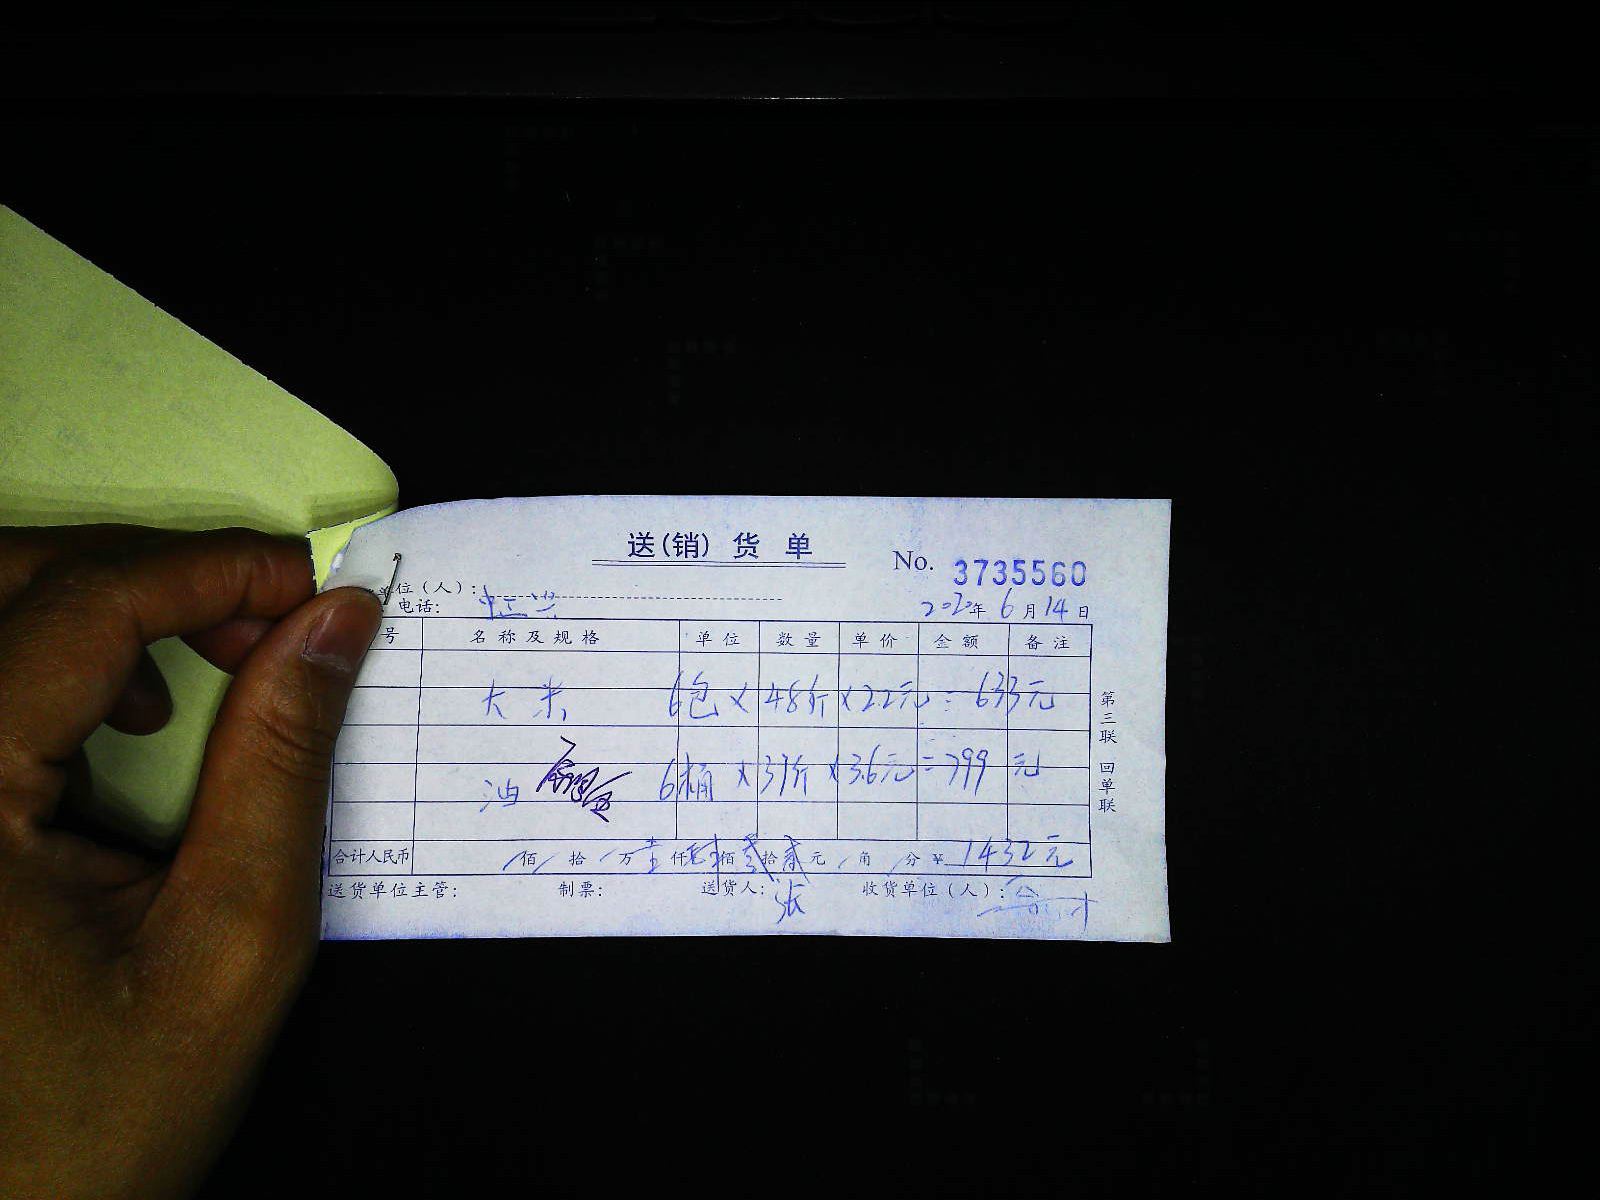 送(销)货单
No. 3735560
单位(人):
电话:
2020年6月14日
号 名称及规格 单位 数量 单价 金额 备注
大米 6包 × 48斤 × 2.2元 = 633元
油 6桶 × 37斤 × 3.6元 = 799元
合计人民币 佰 拾 万 壹仟肆佰叁拾贰元 角 分 ¥ 1432元
送货单位主管: 制票: 送货人: 张 收货单位(人):
第三联 回单联